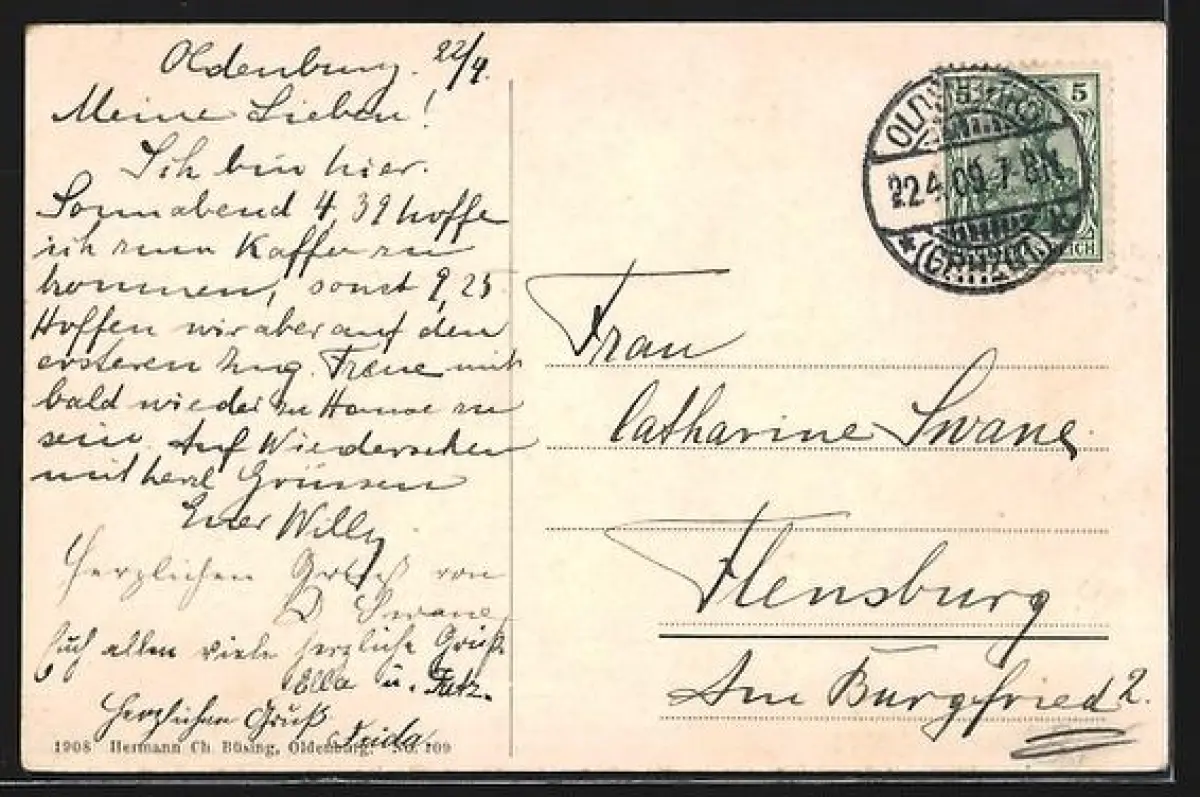 Oldenburg. 22/4.
Meine Lieben!
Ich bin hier.
Sonnabend 4,39 hoffe
ich zum Kaffee zu
kommen, sonst 9,25
Hoffen wir aber auf den
ersteren Zug. Freue mich
bald wieder zu Hause zu
sein. Auf Wiedersehen
mit herzl Grüssen
Euer Willy
Herzlichen Gruß von
Swane
Euch allen viele herzliche Grüße
Ella u. Fritz.
Herzlichen Gruß
1908 Hermann Ch. Büsing, Oldenburg. No. 109
5
OLDENBURG
22.4.09.7-8N.
* (GRHZGT.)
REICH
Frau
Catharine Swane
Flensburg
Am Burgfried 2.